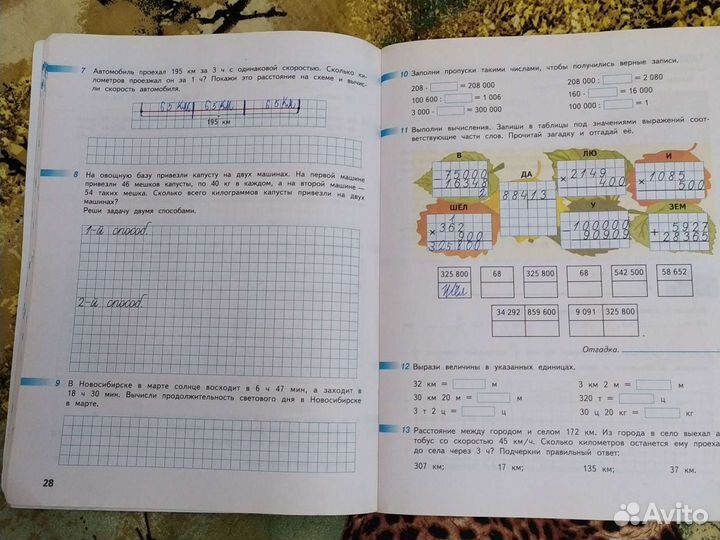 7 Автомобиль проехал 195 км за 3 ч с одинаковой скоростью. Сколько ки-
лометров проезжал он за 1 ч? Покажи это расстояние на схеме и вычис-
ли скорость автомобиля.
65км 65км 65км
195 км
8 На овощную базу привезли капусту на двух машинах. На первой машине
привезли 46 мешков капусты, по 40 кг в каждом, а на второй машине —
54 таких мешка. Сколько всего килограммов капусты привезли на двух
машинах?
Реши задачу двумя способами.
1-й способ.
2-й способ.
9 В Новосибирске в марте солнце восходит в 6 ч 47 мин, а заходит в
18 ч 30 мин. Вычисли продолжительность светового дня в Новосибирске
в марте.
28
10 Заполни пропуски такими числами, чтобы получились верные записи.
208 · = 208 000 208 000 : = 2 080
100 600 : = 1 006 160 · = 16 000
3 000 · = 300 000 100 000 : = 1
11 Выполни вычисления. Запиши в таблицы под значениями выражений соот-
ветствующие части слов. Прочитай загадку и отгадай её.
В ДА ЛЮ И
75000 88413 × 2149 × 1085
16348 400 500
2
ШЁЛ У ЗЕМ
1
× 362 − 100000 + 5927
900 90909 28365
325800
325 800 68 325 800 68 542 500 58 652
шёл
34 292 859 600 9 091 325 800
Отгадка.
12 Вырази величины в указанных единицах.
32 км = м 3 км 2 м = м
30 км 20 м = м 320 т = ц
3 т 2 ц = ц 30 ц 20 кг = кг
13 Расстояние между городом и селом 172 км. Из города в село выехал а
тобус со скоростью 45 км/ч. Сколько километров останется ему проеха
до села через 3 ч? Подчеркни правильный ответ:
307 км; 17 км; 135 км; 37 км.
Avito